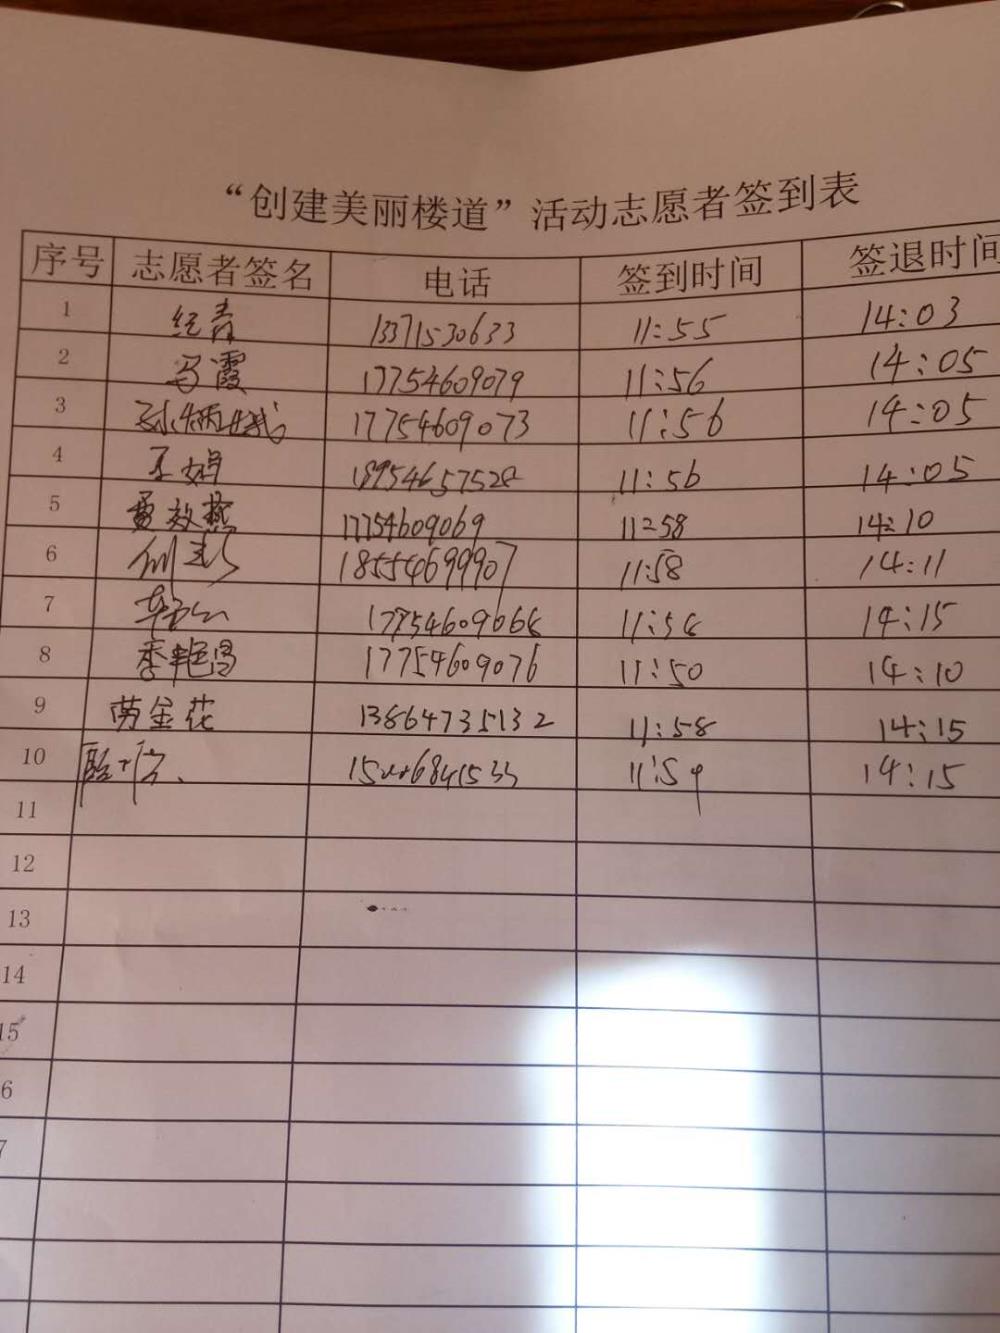 “创建美丽楼道”活动志愿者签到表
序号 志愿者签名 电话 签到时间 签退时间
1 纪青 13371530633 11:55 14:03
2 马霞 17754609079 11:56 14:05
3 17754609073 11:56 14:05
4 18954657528 11:56 14:05
5 黄效燕 17754609069 11:58 14:10
6 18554699907 11:58 14:11
7 17754609066 11:58 14:15
8 季艳昌 17754609076 11:50 14:10
9 劳金花 13864735132 11:58 14:15
10 11:59 14:15
11
12
13
14
15
6
7